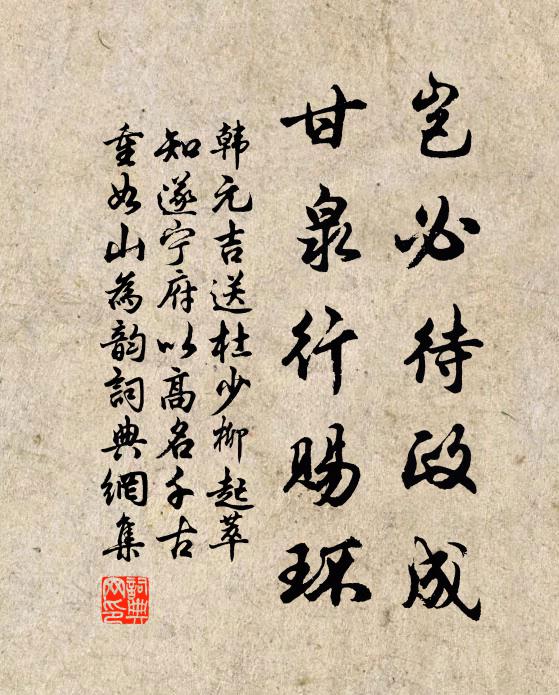 岂必待政成
甘泉行賜环
韩元吉送杜少柳起萃
知遂宁府以高名千古
重如山為韵詞典網集
詞典
网印